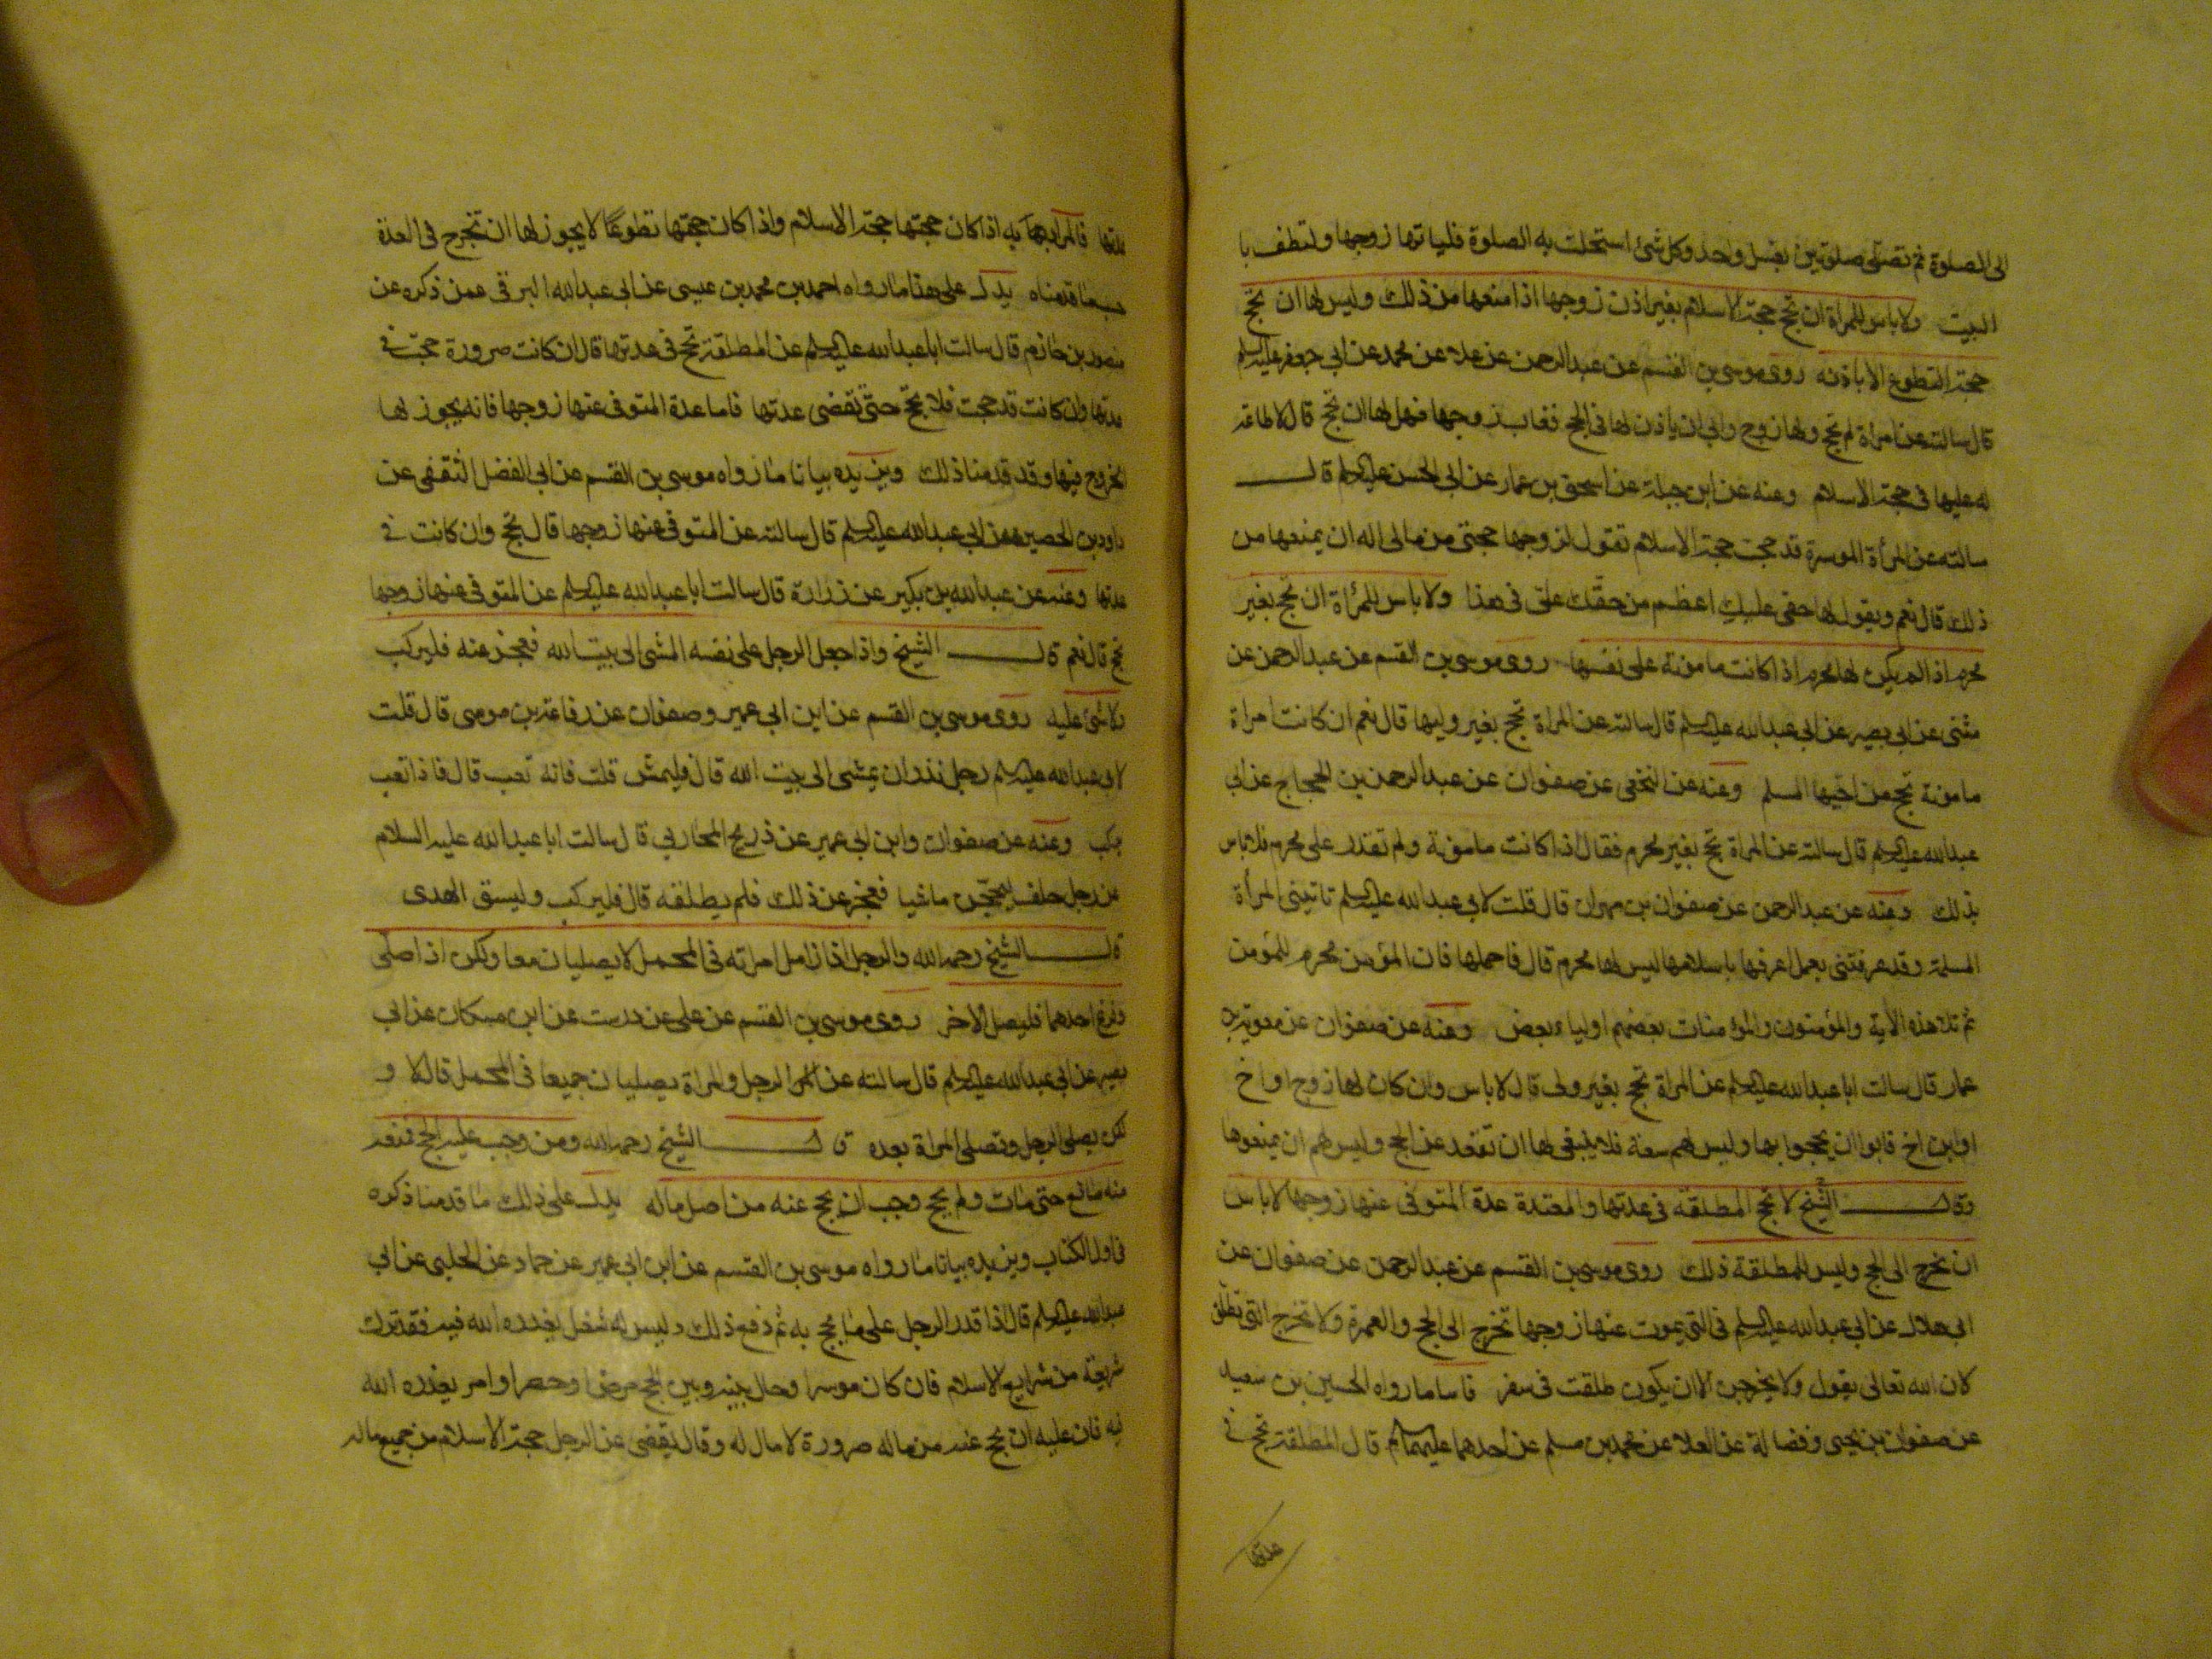 الى الصلوة ثم تصلى صلوتين بغسل واحد وكل شئ استحلت به الصلوة فلياتها زوجها ولتطف با
لبيت ولا باس للمراة ان تحج حجة الاسلام بغير اذن زوجها اذا منعها من ذلك وليس لها ان تحج
حجة التطوع الا باذنه روى موسى بن القسم عن عبدالرحمن عن علا عن محمد عن ابى جعفر عليه السلم
قال سالته عن امراة لم تحج ولها زوج وابى ان ياذن لها فى الحج فغاب زوجها فهل لها ان تحج قال لا طاعة
له عليها فى حجة الاسلام وعنه عن ابن جبلة عن اسحق بن عمار عن ابى الحسن عليه السلم قال
سالته عن المرأة الموسرة قد حجت حجة الاسلام تقول لزوجها حجنى من مالى اله ان يمنعها من
ذلك قال نعم ويقول لها حقى عليك اعظم من حقك على فى هذا ولا باس للمرأة ان تحج بغير
محرم اذا لم يكن لها محرم اذا كانت مامونة على نفسها روى موسى بن القسم عن عبدالرحمن عن
مثنى عن ابى بصير عن ابى عبدالله عليه السلم قال سالته عن المراة تحج بغير وليها قال نعم ان كانت امراة
مامونة تحج من اخيها المسلم وعنه عن النخعى عن صفوان عن عبدالرحمن بن الحجاج عن ابى
عبدالله عليه السلم قال سالته عن المراة تحج بغير محرم فقال اذا كانت مامونة ولم تقدر على محرم فلا باس
بذلك وعنه عن عبدالرحمن عن صفوان بن مهران قال قلت لابى عبدالله عليه السلم تاتينى المرأة
المسلمة وقد عرفتنى بعمل اعرفها باسلامها ليس لها محرم قال فاحملها فان المؤمن محرم للمؤمن
ثم تلا هذه الاية والمؤمنون والمؤمنات بعضهم اولياء بعض وعنه عن صفوان عن معوية بن
عمار قال سالت ابا عبدالله عليه السلم عن المراة تحج بغير ولى قال لا باس وان كان لها زوج او اخ
او ابن اخ فابوا ان يحجوا بها وليس لهم سعة فلا ينبغى لها ان تقعد عن الحج وليس لهم ان يمنعوها
وقال الشيخ لا تحج المطلقة فى عدتها والمعتدة عدة المتوفى عنها زوجها لا باس
ان تخرج الى الحج وليس للمطلقة ذلك روى موسى بن القسم عن عبدالرحمن عن صفوان عن
ابى هلال عن ابى عبدالله عليه السلم فى التى يموت عنها زوجها تخرج الى الحج والعمرة ولا تخرج التى تطلق
لان الله تعالى يقول ولا يخرجن الا ان يكون طلقت فى سفر فاما ما رواه الحسين بن سعيد
عن صفوان بن يحيى وفضالة عن العلا عن محمد بن مسلم عن احدهما عليهما السلم قال المطلقة تحج فى
عدتها
عدتها فالمراد به اذا كان حجتها حجة الاسلام واذا كان حجتها تطوعا لا يجوز لها ان تخرج فى العدة
حسبما قدمناه يدل على هذا ما رواه احمد بن محمد بن عيسى عن ابى عبدالله البرقى عمن ذكره عن
منصور بن حازم قال سالت ابا عبدالله عليه السلم عن المطلقة تحج فى عدتها قال ان كانت صرورة حجت فى
عدتها وان كانت قد حجت فلا تحج حتى تقضى عدتها فاما عدة المتوفى عنها زوجها فانه يجوز لها
الخروج فيها وقد قدمنا ذلك ويزيده بيانا ما رواه موسى بن القسم عن ابى الفضل الثقفى عن
داود بن الحصين عن ابى عبدالله عليه السلم قال سالته عن المتوفى عنها زوجها قال تحج وان كانت فى
عدتها وعنه عن عبدالله بن بكير عن زرارة قال سالت ابا عبدالله عليه السلم عن المتوفى عنها زوجها
تحج قال نعم قال الشيخ واذا جعل الرجل على نفسه المشى الى بيت الله فعجز عنه فليركب
ولا شئ عليه روى موسى بن القسم عن ابن ابى عمير وصفوان عن رفاعة بن موسى قال قلت
لابى عبدالله عليه السلم رجل نذر ان يمشى الى بيت الله قال فليمش قلت فانه تعب قال فاذا تعب
ركب وعنه عن صفوان وابن ابى عمير عن ذريح المحاربى قال سالت ابا عبدالله عليه السلام
عن رجل حلف ليحجن ماشيا فعجز عن ذلك فلم يطلقه قال فليركب وليسق الهدى
قال الشيخ رحمه الله والرجل اذا زامل امراته فى المحمل لا يصليان معا ولكن اذا صلى
وفرغ احدهما فليصل الاخر روى موسى بن القسم عن على عن درست عن ابن مسكان عن ابى
بصير عن ابى عبدالله عليه السلم قال سالته عن الرجل والمراة يصليان جميعا فى المحمل قال لا و
لكن يصلى الرجل وتصلى المراة بعده قال الشيخ رحمه الله ومن وجب عليه الحج فمنعه
منه مانع حتى مات ولم يحج وجب ان يحج عنه من اصل ماله يدل على ذلك ما قدمنا ذكره
فى اول الكتاب ويزيده بيانا ما رواه موسى بن القسم عن ابن ابى عمير عن حماد عن الحلبى عن ابى
عبدالله عليه السلم قال اذا قدر الرجل على ما يحج به ثم دفع ذلك وليس له شغل يعذره الله فيه فقد ترك
شريعة من شرايع الاسلام فان كان موسرا وحال بينه وبين الحج مرض او حصر او امر يعذره الله
فيه فان عليه ان يحج عنه من ماله صرورة لا مال له وقال يقضى عن الرجل حجة الاسلام من جميع ماله